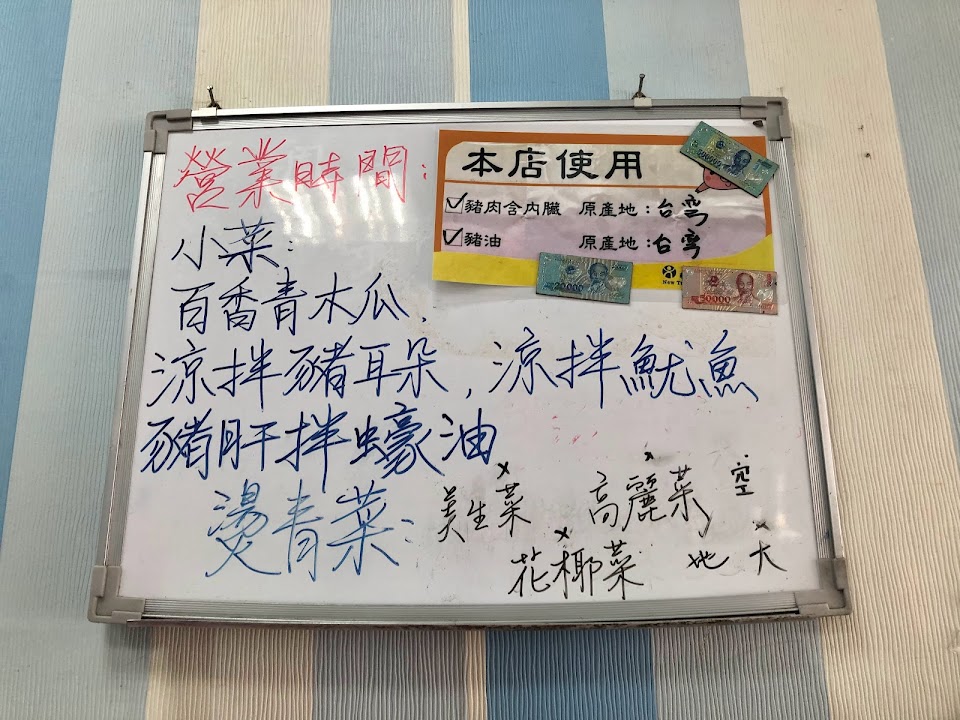 營業時間:
本店使用
豬肉含內臟 原產地:台灣
豬油 原產地:台灣
小菜:
百香青木瓜,
涼拌豬耳朵,涼拌魷魚
豬肝拌蠔油
燙青菜: 美生菜 高麗菜 空
花椰菜 地 大
20000
50000
New T